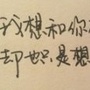 我想和你
却也只是想